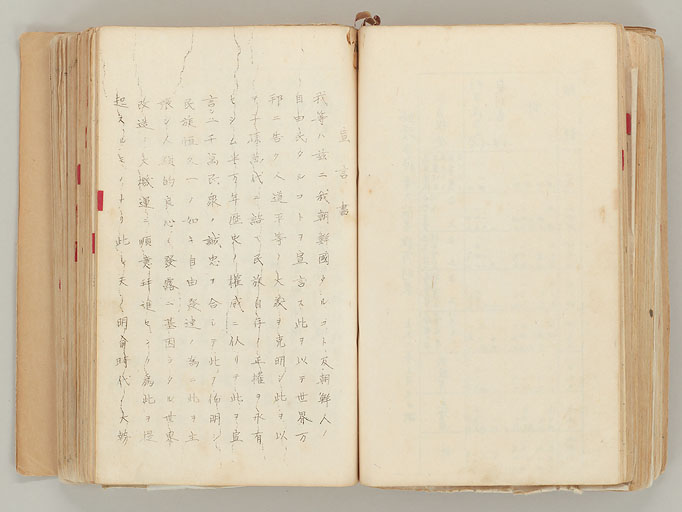 宣言書
我等ハ茲ニ我朝鮮國タルコト及朝鮮人ノ
自由民タルコトヲ宣言ス此ヲ以テ世界万
邦ニ告ケ人道平等ノ大義ヲ克明シ此ヲ以
テ子孫萬代ニ誥ケ民族自存ノ正權ヲ永有
セシム半万年歴史ノ權威ニ仗リテ此ヲ宣
言シ二千萬民衆ノ誠忠ヲ合シテ此ヲ佈明シ
民族恒久一ノ如キ自由發達ノ為ニ此ヲ主
張シ人類的良心ノ發露ニ基因シタル世界
改造ノ大機運ニ順應幷進センカ為此ヲ提
起スルモノナリ此レ天ノ明命時代ノ大勢